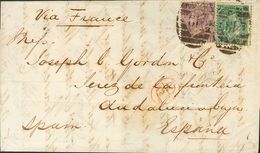 Via France
Mess.
Joseph C. Gordon & Co
Jerez de la frontera
Andalucia baja
Spain España